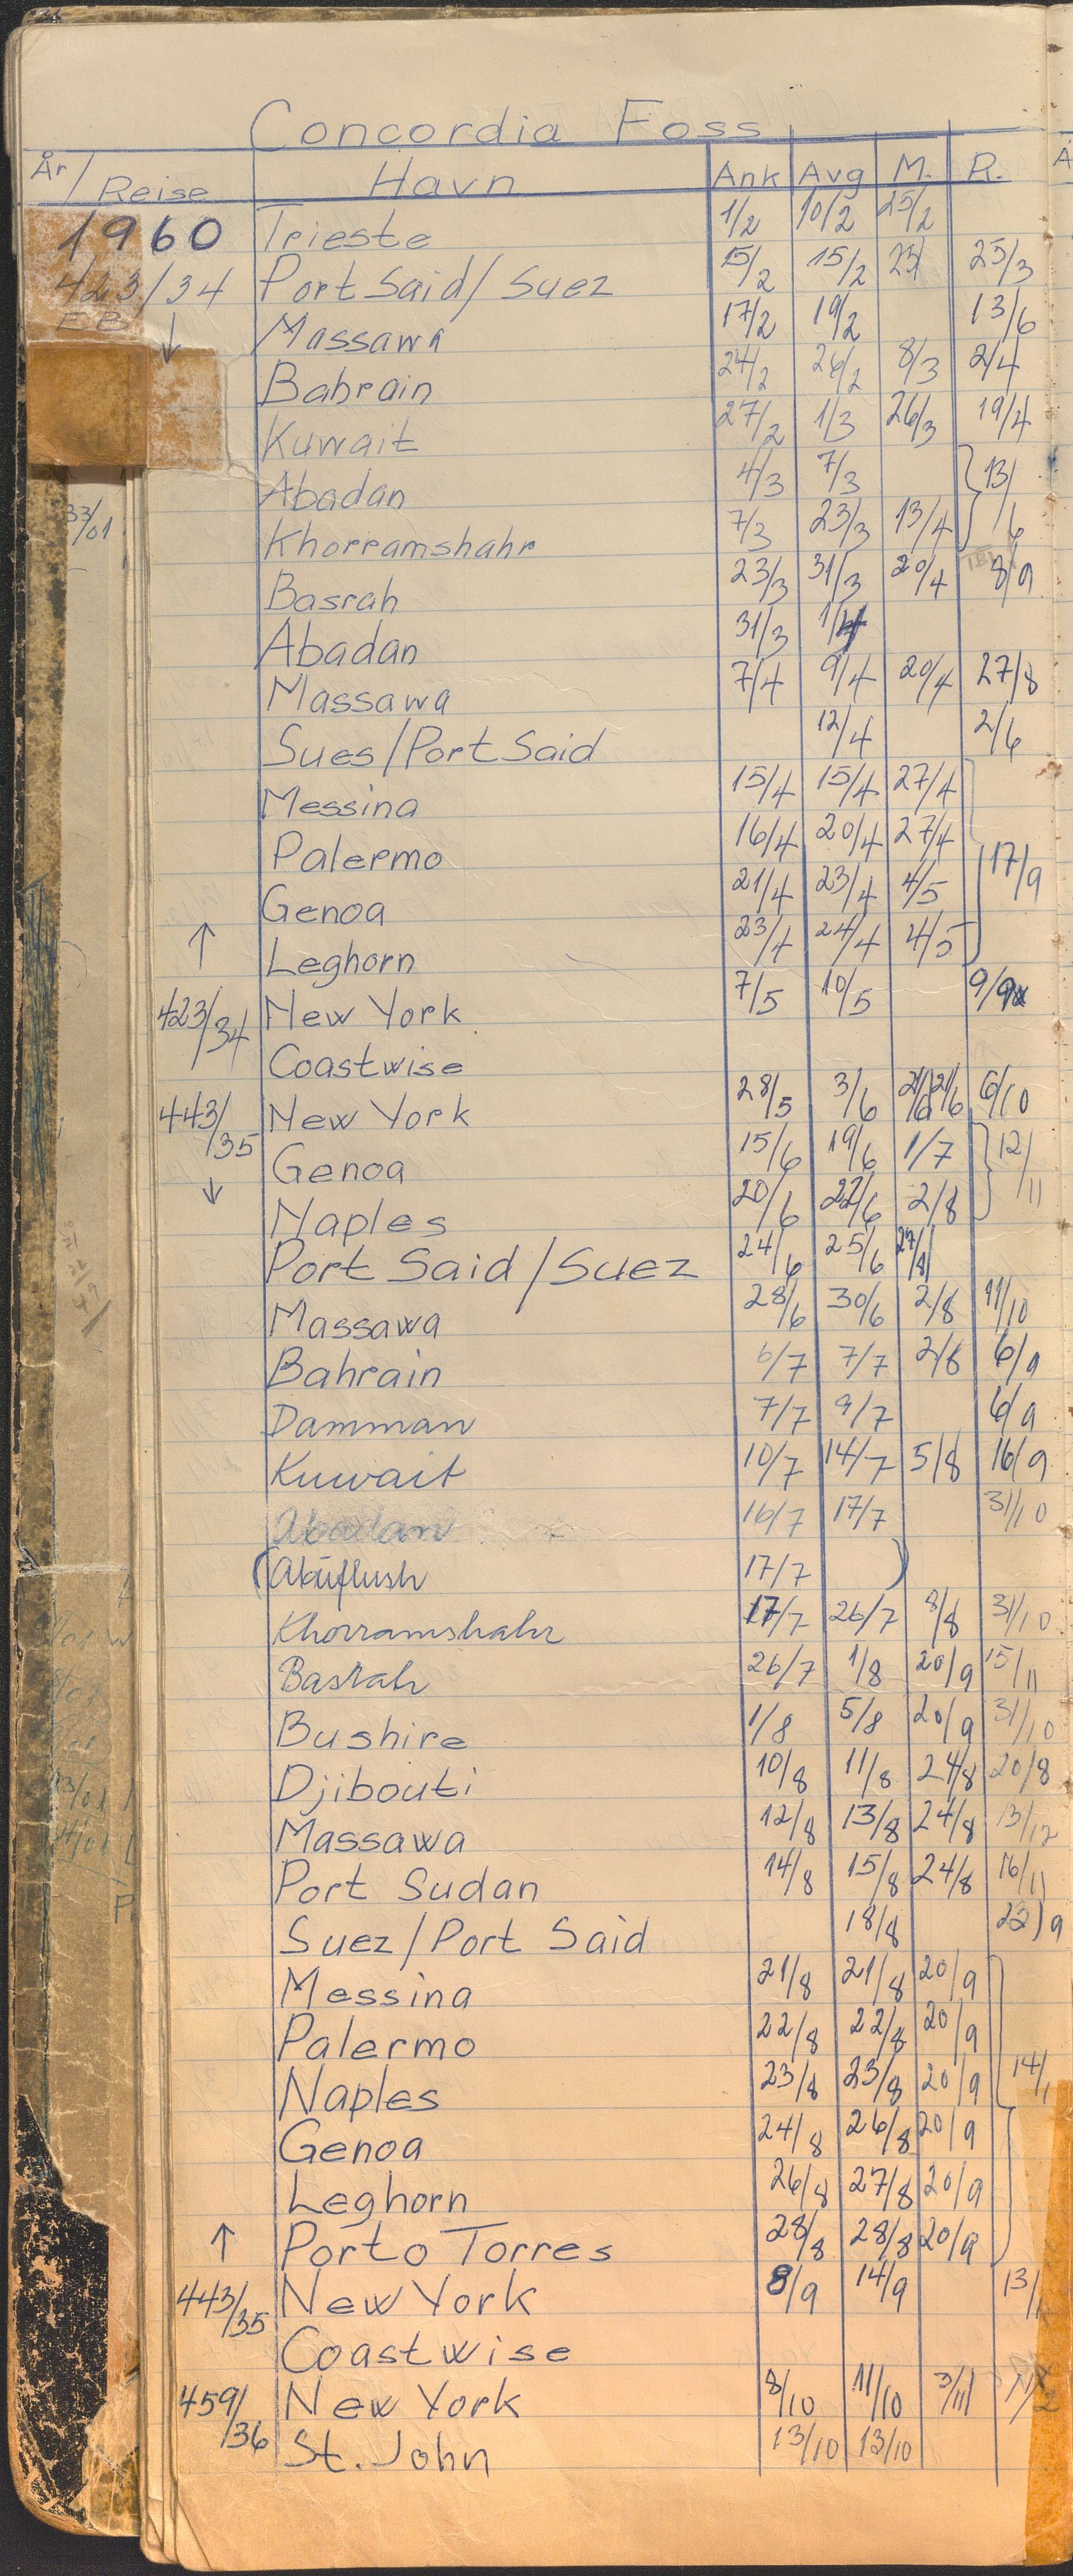 Concordia Foss
År/Reise Havn Ank Avg M. R.
1960 Trieste 1/2 10/2 25/2
423/34 Port Said/Suez 15/2 15/2 23/ 25/3
EB Massawa 17/2 19/2 13/6
↓ Bahrain 24/2 26/2 8/3 2/4
Kuwait 27/2 1/3 26/3 19/4
Abadan 4/3 7/3 } 13/
33/01 Khorramshahr 7/3 23/3 13/4 } /6
Basrah 23/3 31/3 20/4 8/9
Abadan 31/3 1/4
Massawa 7/4 9/4 20/4 27/8
Sues/Port Said 12/4 2/6
Messina 15/4 15/4 27/4
Palermo 16/4 20/4 27/4 17/9
Genoa 21/4 23/4 4/5
↑ Leghorn 23/4 24/4 4/5
423/34 New York 7/5 10/5 9/9
Coastwise
443/35 New York 28/5 3/6 21/6 6/10
Genoa 15/6 19/6 1/7 } 12/11
↓ Naples 20/6 22/6 2/8 }
Port Said/Suez 24/6 25/6
Massawa 28/6 30/6 2/8 11/10
Bahrain 6/7 7/7 2/8 6/9
Damman 7/7 9/7 6/9
Kuwait 10/7 14/7 5/8 16/9
Abadan 16/7 17/7 31/10
(Abuflush 17/7 )
Khorramshahr 17/7 26/7 8/8 31/10
Basrah 26/7 1/8 20/9 15/11
Bushire 1/8 5/8 20/9 31/10
Djibouti 10/8 11/8 24/8 20/8
Massawa 12/8 13/8 24/8 13/12
Port Sudan 14/8 15/8 24/8 16/11
Suez/Port Said 18/8 23/9
Messina 21/8 21/8 20/9
Palermo 22/8 22/8 20/9
Naples 23/8 23/8 20/9 14/1
Genoa 24/8 26/8 20/9
Leghorn 26/8 27/8 20/9
↑ Porto Torres 28/8 28/8 20/9
443/35 New York 8/9 14/9 13/
Coastwise
459/36 New York 8/10 11/10 3/11
St. John 13/10 13/10